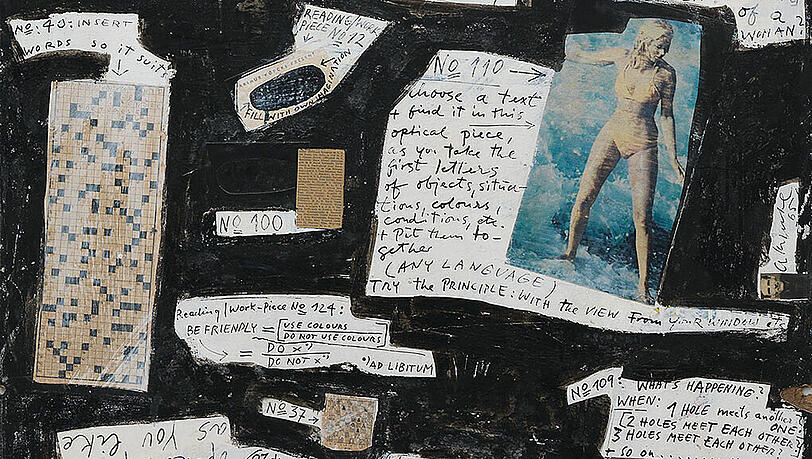 No: 40: INSERT
WORDS SO it SUits
READING/WORK
PIECE No 12
FILL WITH OWN IMAGINATION
of a
WOMAN
No 110 →
choose a text
+ find it in this
optical piece,
as you take the
first letters
of objects, situa-
tions, colours,
conditions, etc.
+ Pit them to-
gether
(ANY LANGUAGE)
TRY the PRINCIPLE: WITH the VIEW From YOUR WINDOW etc.
No 100
Reading/Work-Piece No 124:
BE FRIENDLY = USE COLOURS
DO NOT USE COLOURS
= DO x)
DO NOT x)
x) AD LIBITUM
No 37
No 109: WHAT'S HAPPENING?
WHEN: 1 HOLE meets another ONE?
2 HOLES MEET EACH OTHER?
3 HOLES MEET EACH OTHER?
+ so on......
as you like